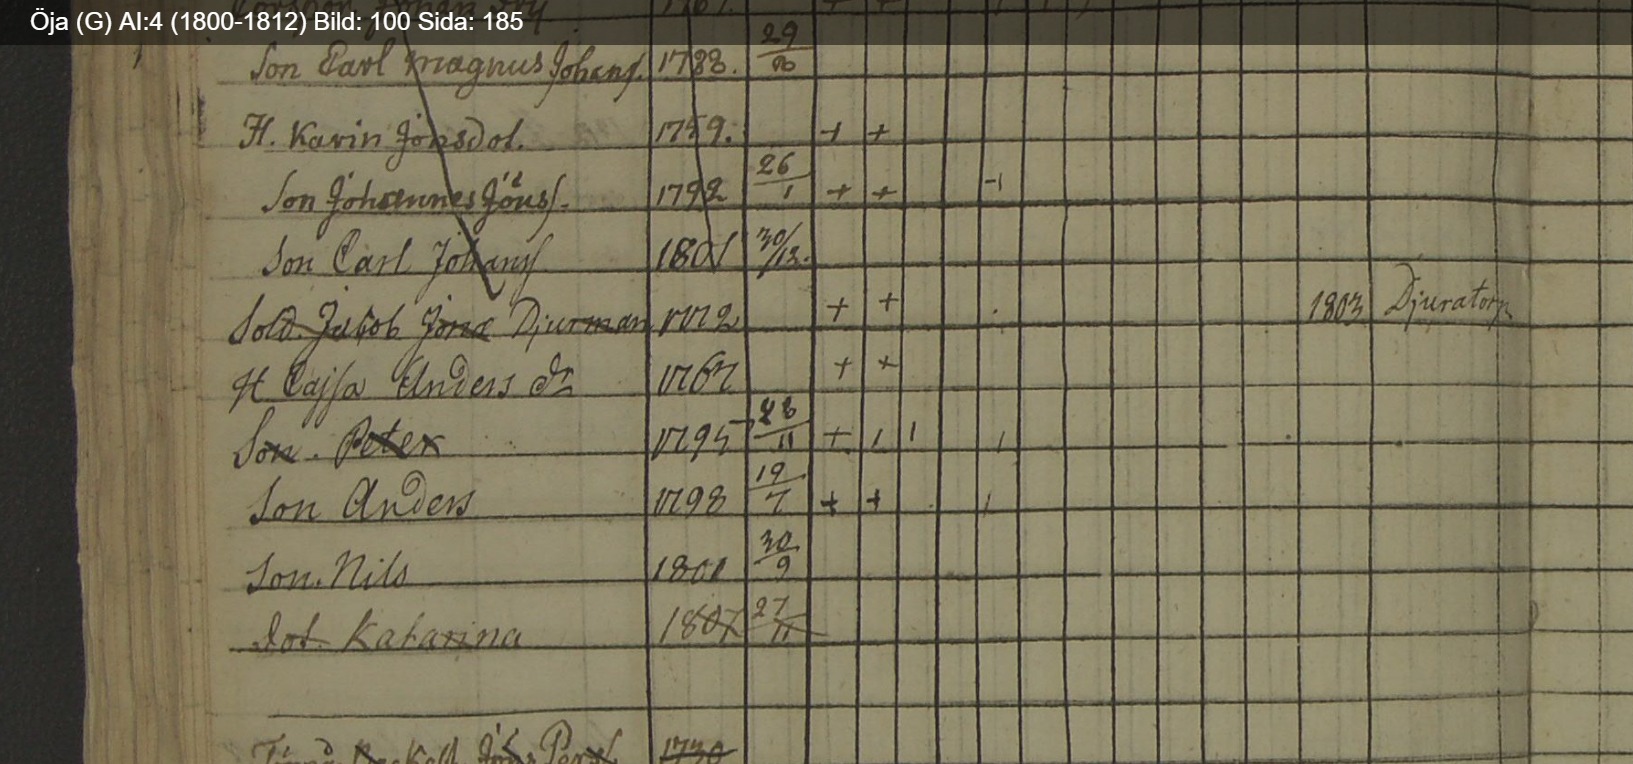 Öja (G) AI:4 (1800-1812) Bild: 100 Sida: 185
Son Carl Magnus Johans. 1788. 29/8
H. Karin Jonsdot. 1759. + +
Son Johannes Jönss. 1792 26/1 + +
Son Carl Johanss 1801 30/12.
Sold. Jakob Jona Djurman 1772 + + 1803 Djuratorp
H Cajsa Anders dr 1767 + +
Son. Peter 1795 28/11 +
Son Anders 1798 19/7 + +
Son. Nils 1801 30/9
Dot Katarina 1807 27/11
1730